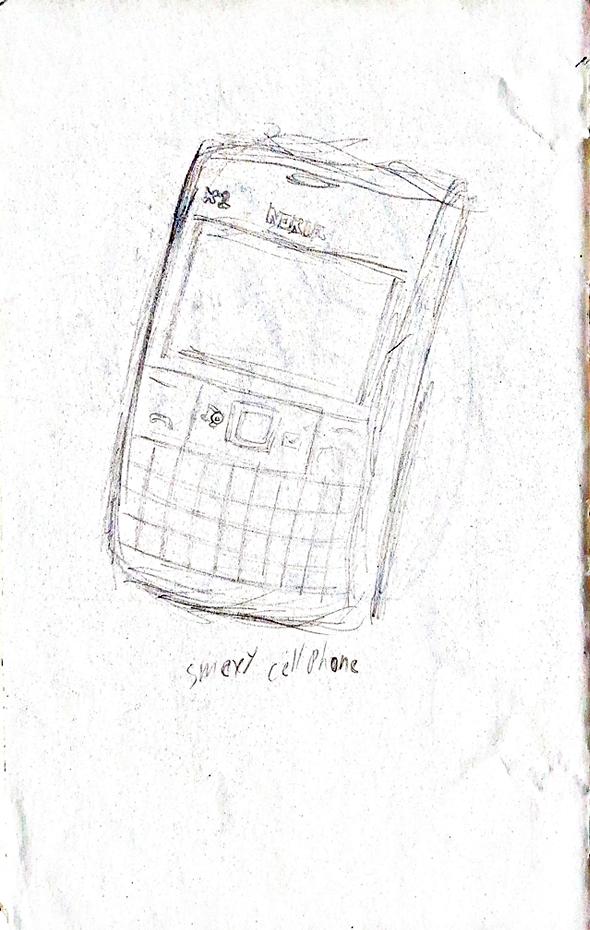 X2
NOKIA
smexy cell phone